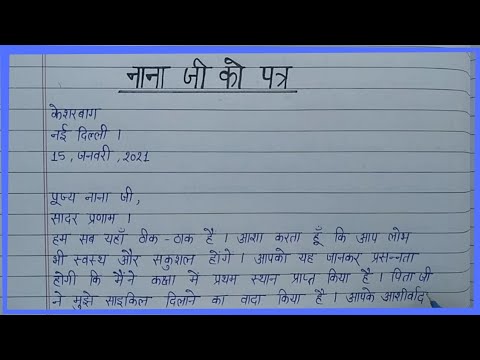 नाना जी को पत्र
केशरबाग
नई दिल्ली ।
15, जनवरी, 2021
पूज्य नाना जी,
सादर प्रणाम ।
हम सब यहाँ ठीक-ठाक है । आशा करता हूँ कि आप लोग
भी स्वस्थ और सकुशल होंगे । आपको यह जानकर प्रसन्नता
होगी कि मैंने कक्षा में प्रथम स्थान प्राप्त किया है । पिता जी
ने मुझे साइकिल दिलाने का वादा किया है । आपके आशीर्वाद